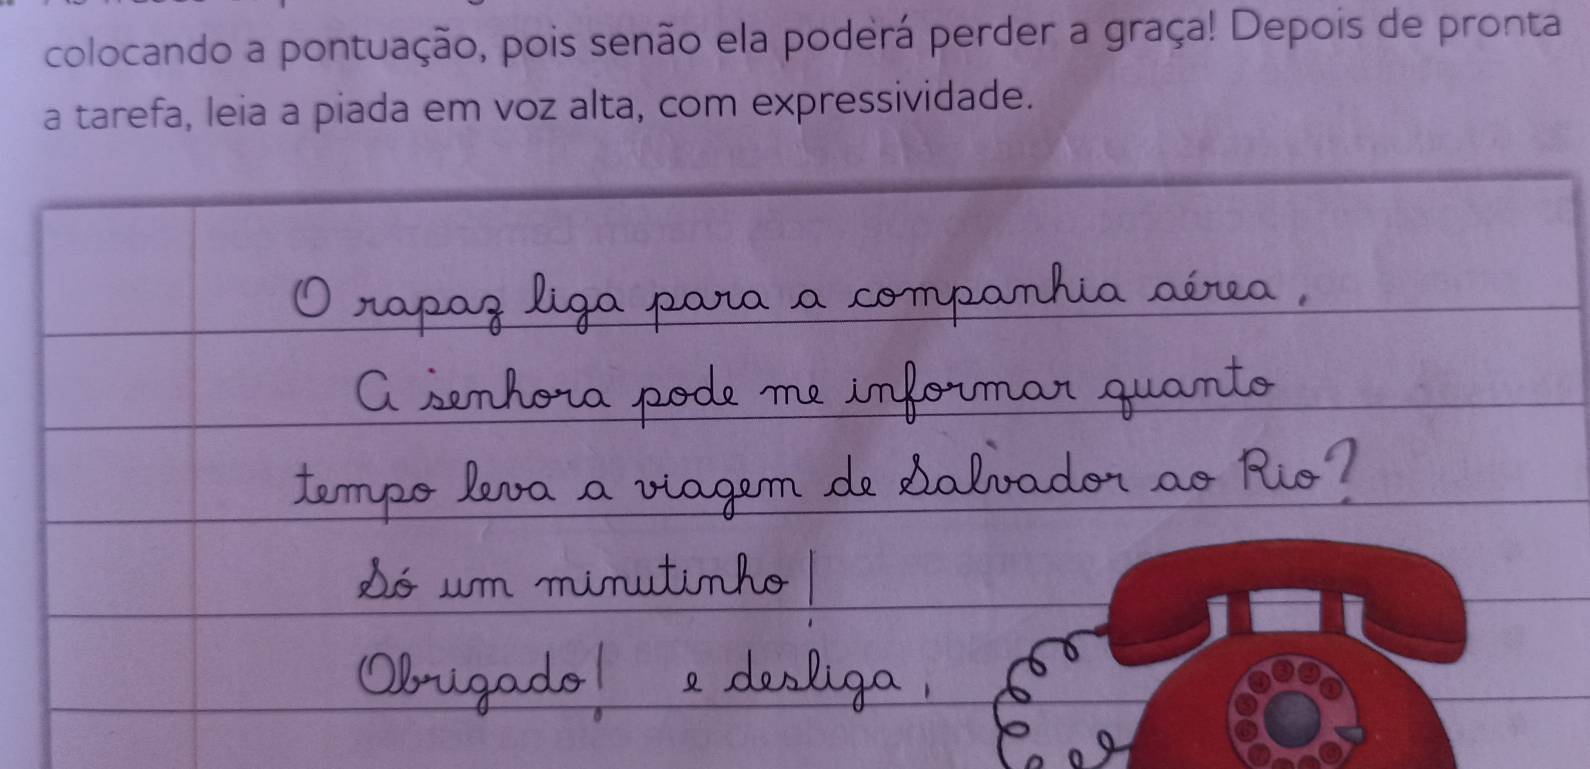 colocando a pontuação, pois senão ela poderá perder a graça! Depois de pronta
a tarefa, leia a piada em voz alta, com expressividade.
O rapaz liga para a companhia aérea.
A senhora pode me informar quanto
tempo leva a viagem de Salvador ao Rio?
Só um minutinho!
Obrigado! e desliga.